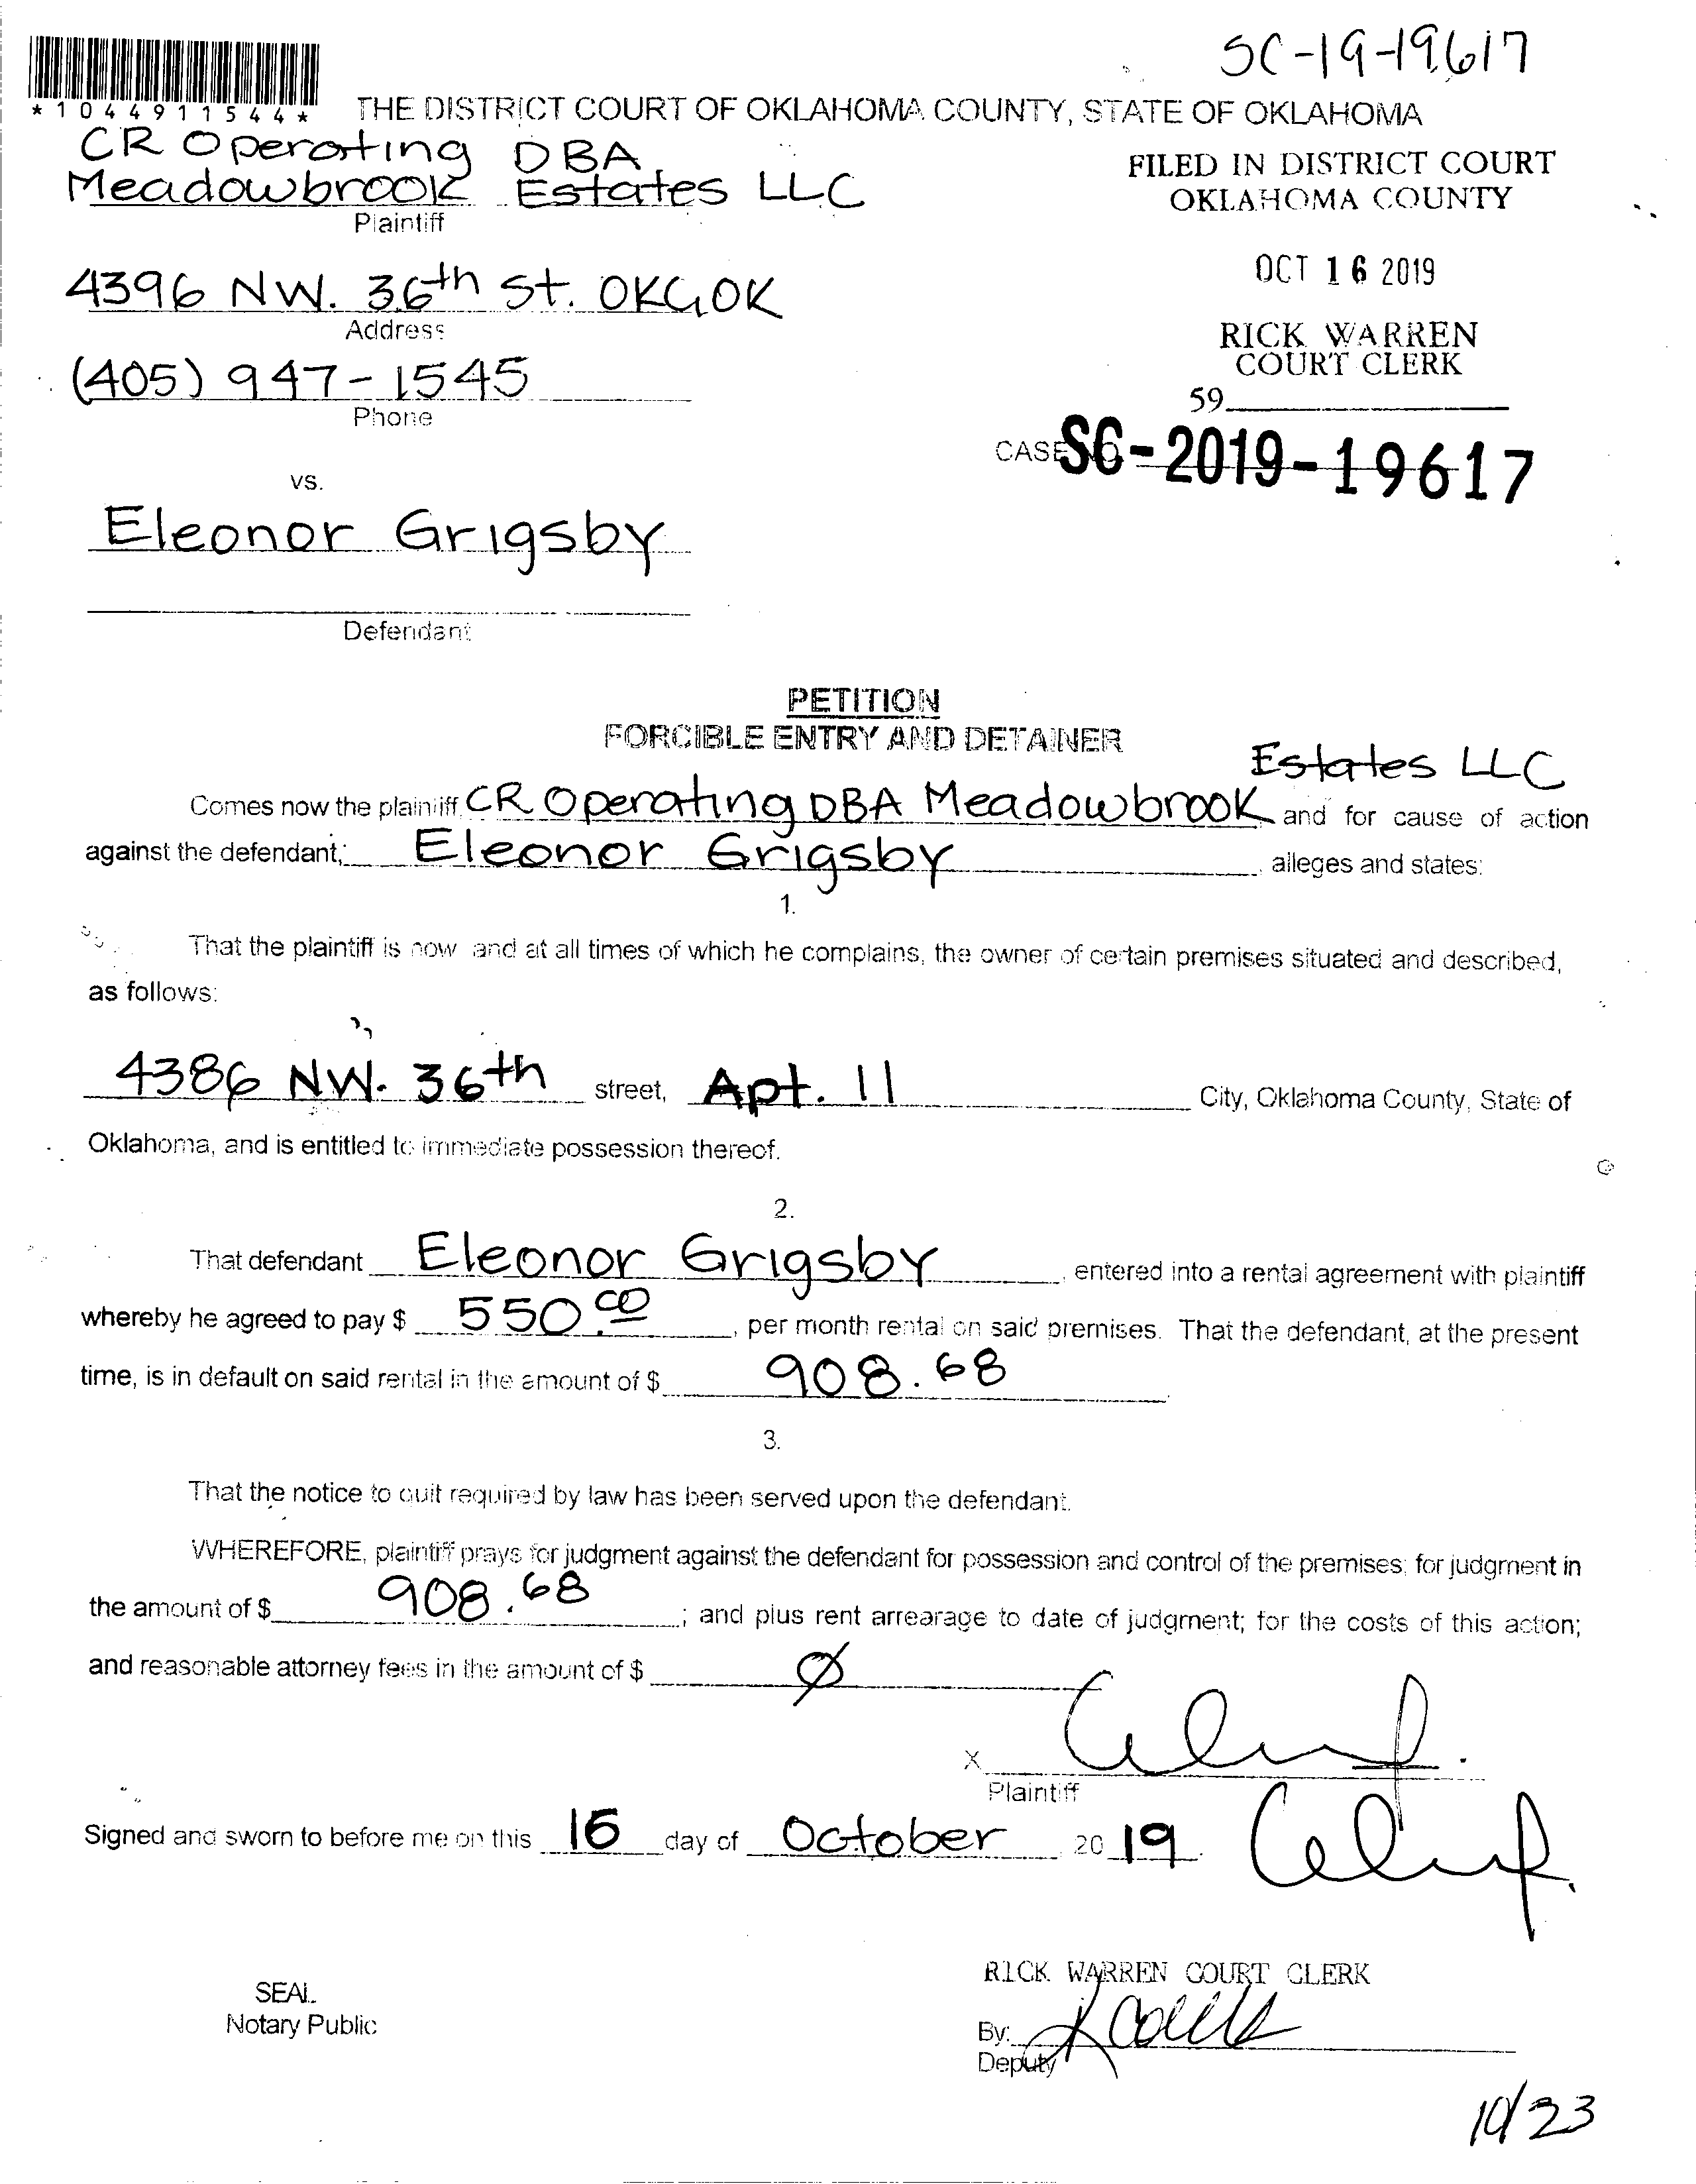 SC-19-19617
*1044911544*
THE DISTRICT COURT OF OKLAHOMA COUNTY, STATE OF OKLAHOMA
CR Operating DBA
Meadowbrook Estates LLC
Plaintiff
FILED IN DISTRICT COURT
OKLAHOMA COUNTY
4396 NW. 36th St. OKC, OK
Address
OCT 16 2019
(405) 947-1545
Phone
RICK WARREN
COURT CLERK
59
CASE NO. SC-2019-19617
vs.
Eleonor Grigsby
Defendant
PETITION
FORCIBLE ENTRY AND DETAINER
Estates LLC
Comes now the plaintiff CR Operating DBA Meadowbrook and for cause of action
against the defendant, Eleonor Grigsby, alleges and states:
1.
That the plaintiff is now and at all times of which he complains, the owner of certain premises situated and described,
as follows:
4386 NW. 36th street, Apt. 11 City, Oklahoma County, State of
Oklahoma, and is entitled to immediate possession thereof.
2.
That defendant Eleonor Grigsby, entered into a rental agreement with plaintiff
whereby he agreed to pay $ 550.00, per month rental on said premises. That the defendant, at the present
time, is in default on said rental in the amount of $ 908.68.
3.
That the notice to quit required by law has been served upon the defendant.
WHEREFORE, plaintiff prays for judgment against the defendant for possession and control of the premises; for judgment in
the amount of $ 908.68; and plus rent arrearage to date of judgment; for the costs of this action;
and reasonable attorney fees in the amount of $ Ø
X
Plaintiff
Signed and sworn to before me on this 16 day of October, 2019.
RICK WARREN COURT CLERK
SEAL
Notary Public
By:
Deputy
10/23